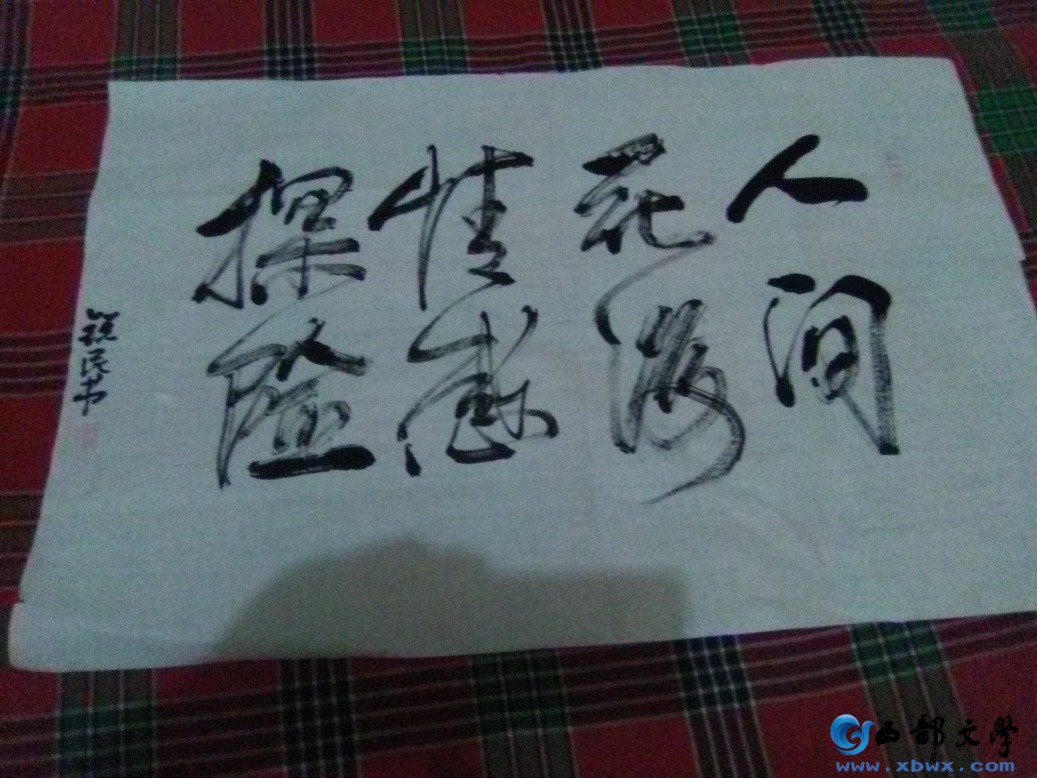 人间
花海
情感
探险
民书
西部文學
www.xbwx.com